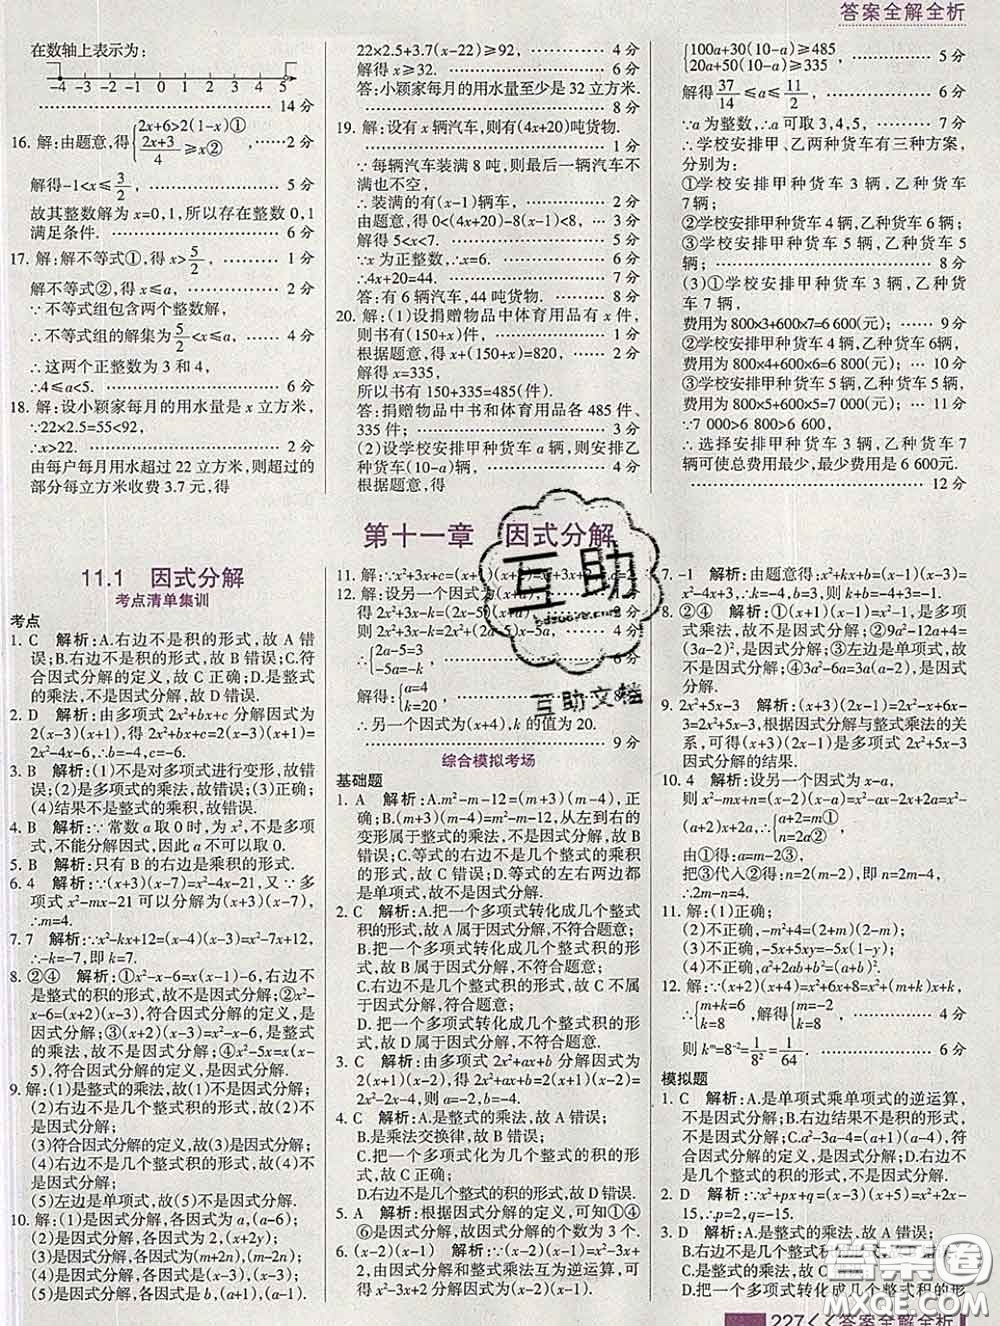 答案全解全析
在数轴上表示为:
-4 -3 -2 -1 0 1 2 3 4 5
14 分
16. 解:由题意,得{2x+6>2(1-x)① (2x+3)/4≥x②, ……2 分
解得-1<x≤3/2, 5 分
故其整数解为 x=0,1,所以存在整数 0,1
满足条件. 6 分
17. 解:解不等式①,得 x>5/2, 1 分
解不等式②,得 x<a, 2 分
∵不等式组包含两个整数解,
∴不等式组的解集为5/2<x≤a,
∴这两个正整数为 3 和 4,
∴4≤a<5. 6 分
18. 解:设小颖家每月的用水量是 x 立方米,
∵22×2.5=55<92,
∴x>22. 2 分
由每户每月用水超过 22 立方米,则超过的
部分每立方米收费 3.7 元,得
22×2.5+3.7(x-22)≥92, 4 分
解得 x≥32. 6 分
答:小颖家每月的用水量至少是 32 立方米.
8 分
19. 解:设有 x 辆汽车,则有(4x+20)吨货物.
1 分
∵每辆汽车装满 8 吨,则最后一辆汽车不满
也不空,
∴装满的有(x-1)辆车, 2 分
由题意,得 0<(4x+20)-8(x-1)<8, 3 分
解得 5<x<7. 5 分
∵x 为正整数,∴x=6. 6 分
∴4x+20=44. 7 分
答:有 6 辆汽车,44 吨货物. 8 分
20. 解:(1)设捐赠物品中体育用品有 x 件,
则书有(150+x)件, 1 分
根据题意,得 x+(150+x)=820, 2 分
解得 x=335,
所以书有 150+335=485(件).
答:捐赠物品中书和体育用品各 485 件、
335 件; 3 分
(2)设学校安排甲种货车 a 辆,则安排乙
种货车(10-a)辆, 4 分
根据题意,得
{100a+30(10-a)≥485 20a+50(10-a)≥335, 5 分
解得37/14≤a≤11/2, 6 分
∵a 为整数,∴a 可取 3,4,5, 7 分
∴学校安排甲、乙两种货车有三种方案,
分别为:
①学校安排甲种货车 3 辆,乙种货车
7 辆;
②学校安排甲种货车 4 辆,乙种货车 6 辆;
③学校安排甲种货车 5 辆,乙种货车 5
辆; 8 分
(3)①学校安排甲种货车 3 辆,乙种货
车 7 辆,
费用为 800×3+600×7=6 600(元); 9 分
②学校安排甲种货车 4 辆,乙种货车 6辆,
费用为 800×4+600×6=6 800(元); … 10 分
③学校安排甲种货车 5 辆,乙种货车 5 辆,
费用为 800×5+600×5=7 000(元).
11 分
∵7 000>6 800>6 600,
∴选择安排甲种货车 3 辆,乙种货车 7
辆可使总费用最少,最少费用是 6 600元.
12 分
第十一章 因式分解
11.1 因式分解
考点清单集训
考点
1. C 解析:A.右边不是积的形式,故 A 错
误;B.右边不是积的形式,故 B 错误;C.符
合因式分解的定义,故 C 正确;D.是整式
的乘法,不是因式分解,故 D 错误.
2. D 解析:由多项式 2x²+bx+c 分解因式为
2(x-3)(x+1),得 2x²+bx+c=2(x-3)(x+1)=
2x²-4x-6.∴b=-4,c=-6.
3. B 解析:(1)不是对多项式进行变形,故错误;
(2)是多项式的乘法,故错误;
(4)结果不是整式的乘积,故错误.
4. B 解析:∵常数 a 取 0 时,为 x²,不是多项
式,不能分解因式,因此 a 不可以取 0.
5. B 解析:只有 B 的右边是乘积的形式.
6. 4 解析:∵(x+3)(x-7)=x²-4x-21,又∵多
项式 x²-mx-21 可以分解为(x+3)(x-7),
∴m=4.
7. 7 解析:∵x²-kx+12=(x-4)(x-3)=x²-7x+12,
∴-k=-7,即 k=7.
8. ②④ 解析:①x²-x-6=x(x-1)-6,右边不
是整式的积的形式,不是因式分解;②x²-
x-6=(x+2)(x-3),符合因式分解的定义,是
因式分解;③(x+2)(x-3)=x²-x-6,是整式
的乘法,不是因式分解;④x²-5x=x(x-
5),符合因式分解的定义,是因式分解.
9. 解:(1)是整式的乘法,故(1)不是因式分解;
(2)右边不是几个整式积的形式,故(2)不
是因式分解;
(3)符合因式分解的定义,故(3)是因式分解;
(4)右边不是几个整式积的形式,故(4)不
是因式分解;
(5)左边是单项式,故(5)不是因式分解.
10. 解:(1)是因式分解,各因式为 a,(a-6);
(2)是因式分解,各因式为 2,(x+2y);
(3)是因式分解,各因式为(m+2n),(m-2n);
(4)是因式分解,各因式为 b,(a+1),(a-1).
12. 解:设另一个因式为(x+a),
得 2x²+3x-k=(2x-5)(x+a), 2 分
4 分
∴{2a-5=3 -5a=-k, 6 分
解得:{a=4 k=20,
∴另一个因式为(x+4),k 的值为 20.
9 分
综合模拟考场
基础题
1. A 解析:A.m²-m-12=(m+3)(m-4),正
确;B.(m+3)(m-4)=m²-m-12,从左到右的
变形属于整式的乘法,不是因式分解,故 B
错误;C.等式的右边不是几个整式积的形
式,故 C 错误;D.等式的左右两边都
是单项式,故不是因式分解.
2. C 解析:A.把一个多项式转化成几个整式
积的形式,故 A 属于因式分解,不符合题意;
B.把一个多项式转化成几个整式积的形
式,故 B 属于因式分解,不符合题意;
C.右边不是几个整式积的形式,故 C 不属
于因式分解,符合题意;
D.把一个多项式转化成几个整式积的形
式,故 D 属于因式分解,不符合题意.
3. C 解析:由多项式 2x²+ax+b 分解因式为
2(x+1)(x-2),得 2x²+ax+b=2(x+1)
(x-2)=2x²-2x-4.
4. C 解析:A.是整式的乘法,故 A 错误;
B.是乘法交换律,故 B 错误;
C.把一个多项式转化成几个整式积的形
式,故 C 正确;
D.右边不是几个整式的积的形式,故 D 错误.
5. A 解析:根据因式分解的定义,可知①④
⑥是因式分解,故因式分解的个数为 3 个.
6. (x-2)(x-1) 解析:∵(x-2)(x-1)=x²-3x+
2,因式分解和整式乘法互为逆运算,可得
x²-3x+2 分解因式的结果为(x-2)(x-1).
7. -1 解析:由题意得:x²+kx+b=(x-1)(x-
3)=x²-4x+3,∴k=-4,b=3,则 k+b=-4+3=-1.
8. ②④ 解析:①(x+1)(x-1)=x²-1,是多项
式乘法,故不是因式分解;②9a²-12a+4=
(3a-2)²,是因式分解;③左边是单项式,不
是因式分解;④3a²-6a=3a(a-2),是因式分解.
9. 2x²+5x-3 解析:∵(2x-1)(x+3)=2x²-x+6x-
3=2x²+5x-3,根据因式分解与整式乘法的关
系,可得(x+3)(2x-1)是多项式 2x²+5x-3
因式分解的结果.
10. 4 解析:设另一个因式为 x-a,
则 x²-mx+n=(x-2)(x-a)=x²-ax-2x+2a=x²-(a+
2)x+2a,∴{a+2=m① 2a=n②,
由①得:a=m-2③,
把③代入②得:n=2(m-2),即 n=2m-4,
∴2m-n=4.
11. 解:(1)正确;
(2)不正确,-m²+4=(2+m)(2-m);
(3)不正确,-5x+5xy=-5x(1-y);
(4)不正确,a²+2ab+b²=(a+b)².
12. 解:∵(x+2)(x+4)=x²+6x+8=x²+(m+k)x+k,
∴{m+k=6 k=8,解得{m=-2 k=8, 4 分
则 kᵐ=8⁻²=1/8²=1/64. 6 分
模拟题
1. C 解析:A.是单项式乘单项式的逆运算,
不是因式分解;B.右边结果不是积的形式,
不是因式分解;C.a²-3a-4=(a+1)(a-4),符
合因式分解的定义,是因式分解;D.右边不
是几个整式的积的形式,不是因式分解.
2. D 解析:∵x²+px+q=(x-3)(x+5)=x²+2x-15,
∴p=2,q=-15.
3. D 解析:A.是整式的乘法,故 A 错误;
C.是整式的乘法,故 C 错误;
D.把一个多项式转化成几个整式积的形
互助
互助文档
答案圈
MXQE.COM
227<<答案全解全析